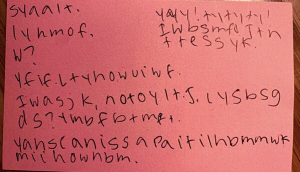 syaalt.
lyhmof.
w?
yfifltyhowuiwf.
Iwasjk, notoyltJ. lysbsg
ds? tmbfbtmpt.
yahscanissapaitilhbmmwk
miihownbm.
yayy! tytytyty!
Iwbsmfl Jth
tressyk.